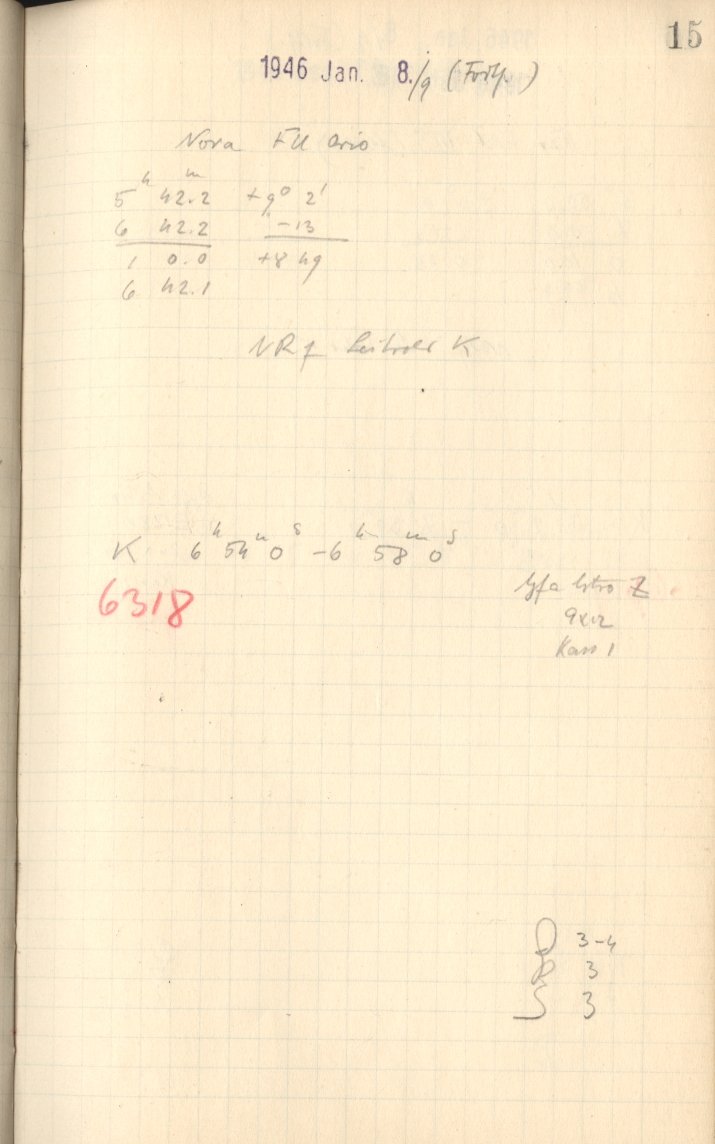 15
1946 Jan. 8./9 (Forts.)
Nova FU Orio
5h 42.2m +9° 2'
6 42.2 -13
1 0.0 +8 49
6 42.1
K
K 6h 54m 0s - 6h 58m 0s
6318
Agfa Astro Z
9x12
Kass 1
D 3-4
R 3
S 3